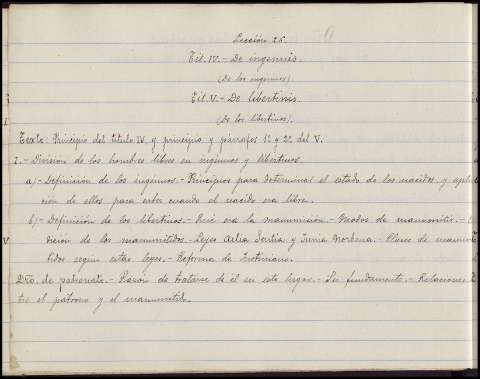 Lección 26.
Tit. IV. - De ingenuis.
(De los ingenuos).
Tit. V. - De libertinis.
(De los libertinos).
Texto - Principio del titulo IV y principio y párrafos 1º y 2º del V.
I. - División de los hombres libres en ingenuos y libertinos.
a) - Definición de los ingenuos. - Principios para determinar el estado de los nacidos, y aplica
ción de ellos para saber cuando el nacido era libre.
b) - Definición de los libertinos. - Qué era la manumisión. - Modos de manumitir. -
dición de los manumitidos. - Leyes Aelia Sentia y Junia Norbana. - Clases de manumi
tidos según estas leyes. - Reforma de Justiniano.
Dro. de patronato. - Razón de tratarse de él en este lugar. - Su fundamento. - Relaciones
tre el patrono y el manumitido.